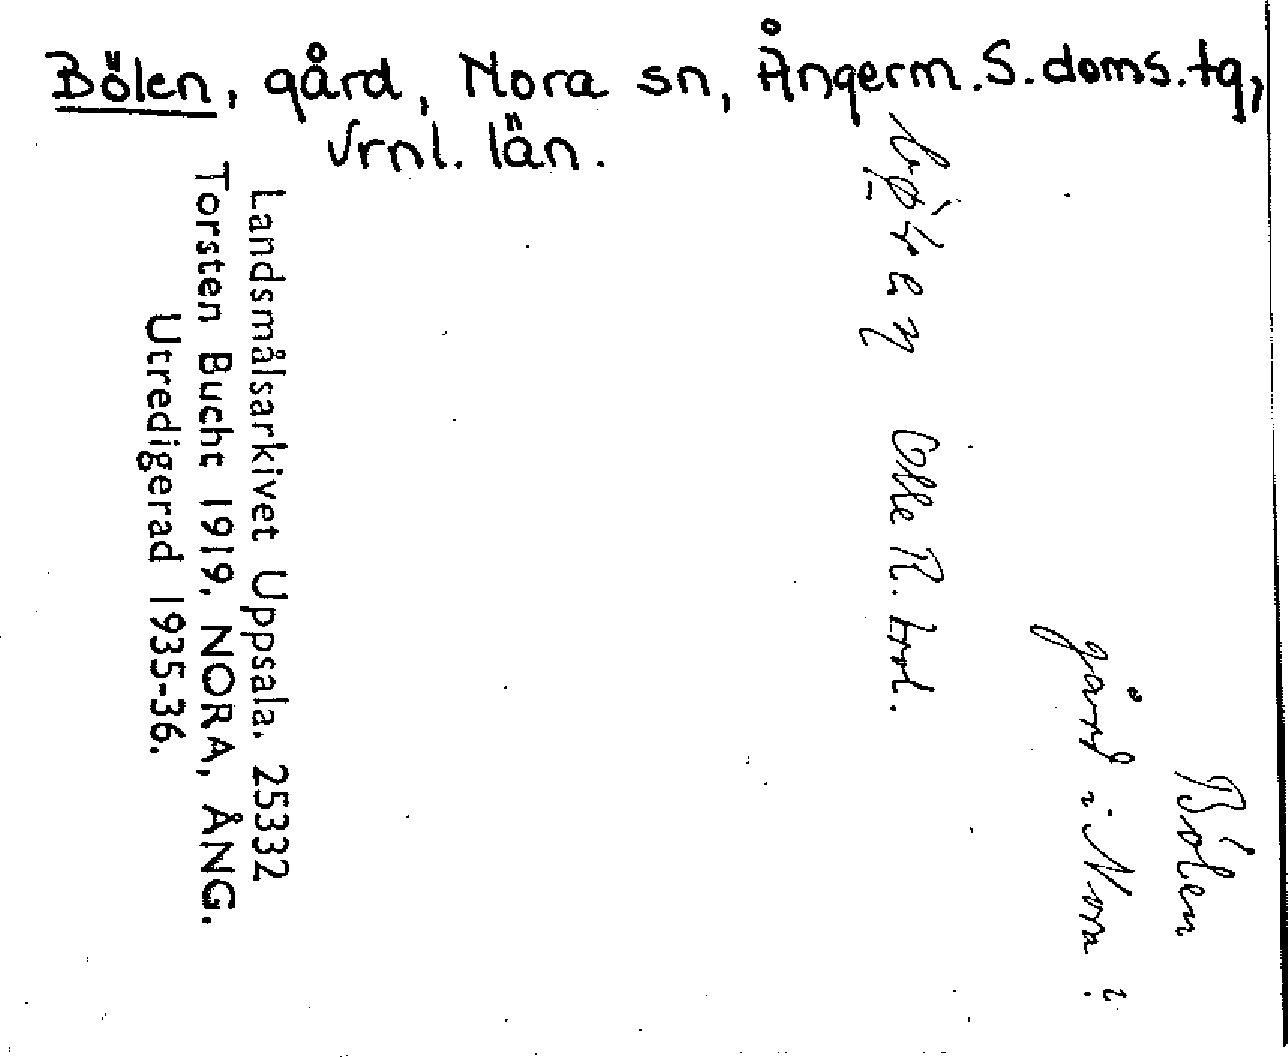 Bölen, gård, Nora sn, Ångerm. S. doms. tg,
Vrnl. län.
Bölen
gård i Nora
Olle N.
Landsmålsarkivet Uppsala. 25332
Torsten Bucht 1919. NORA, ÅNG.
Utredigerad 1935-36.